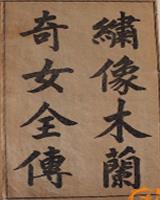 繡像木蘭
奇女全傳